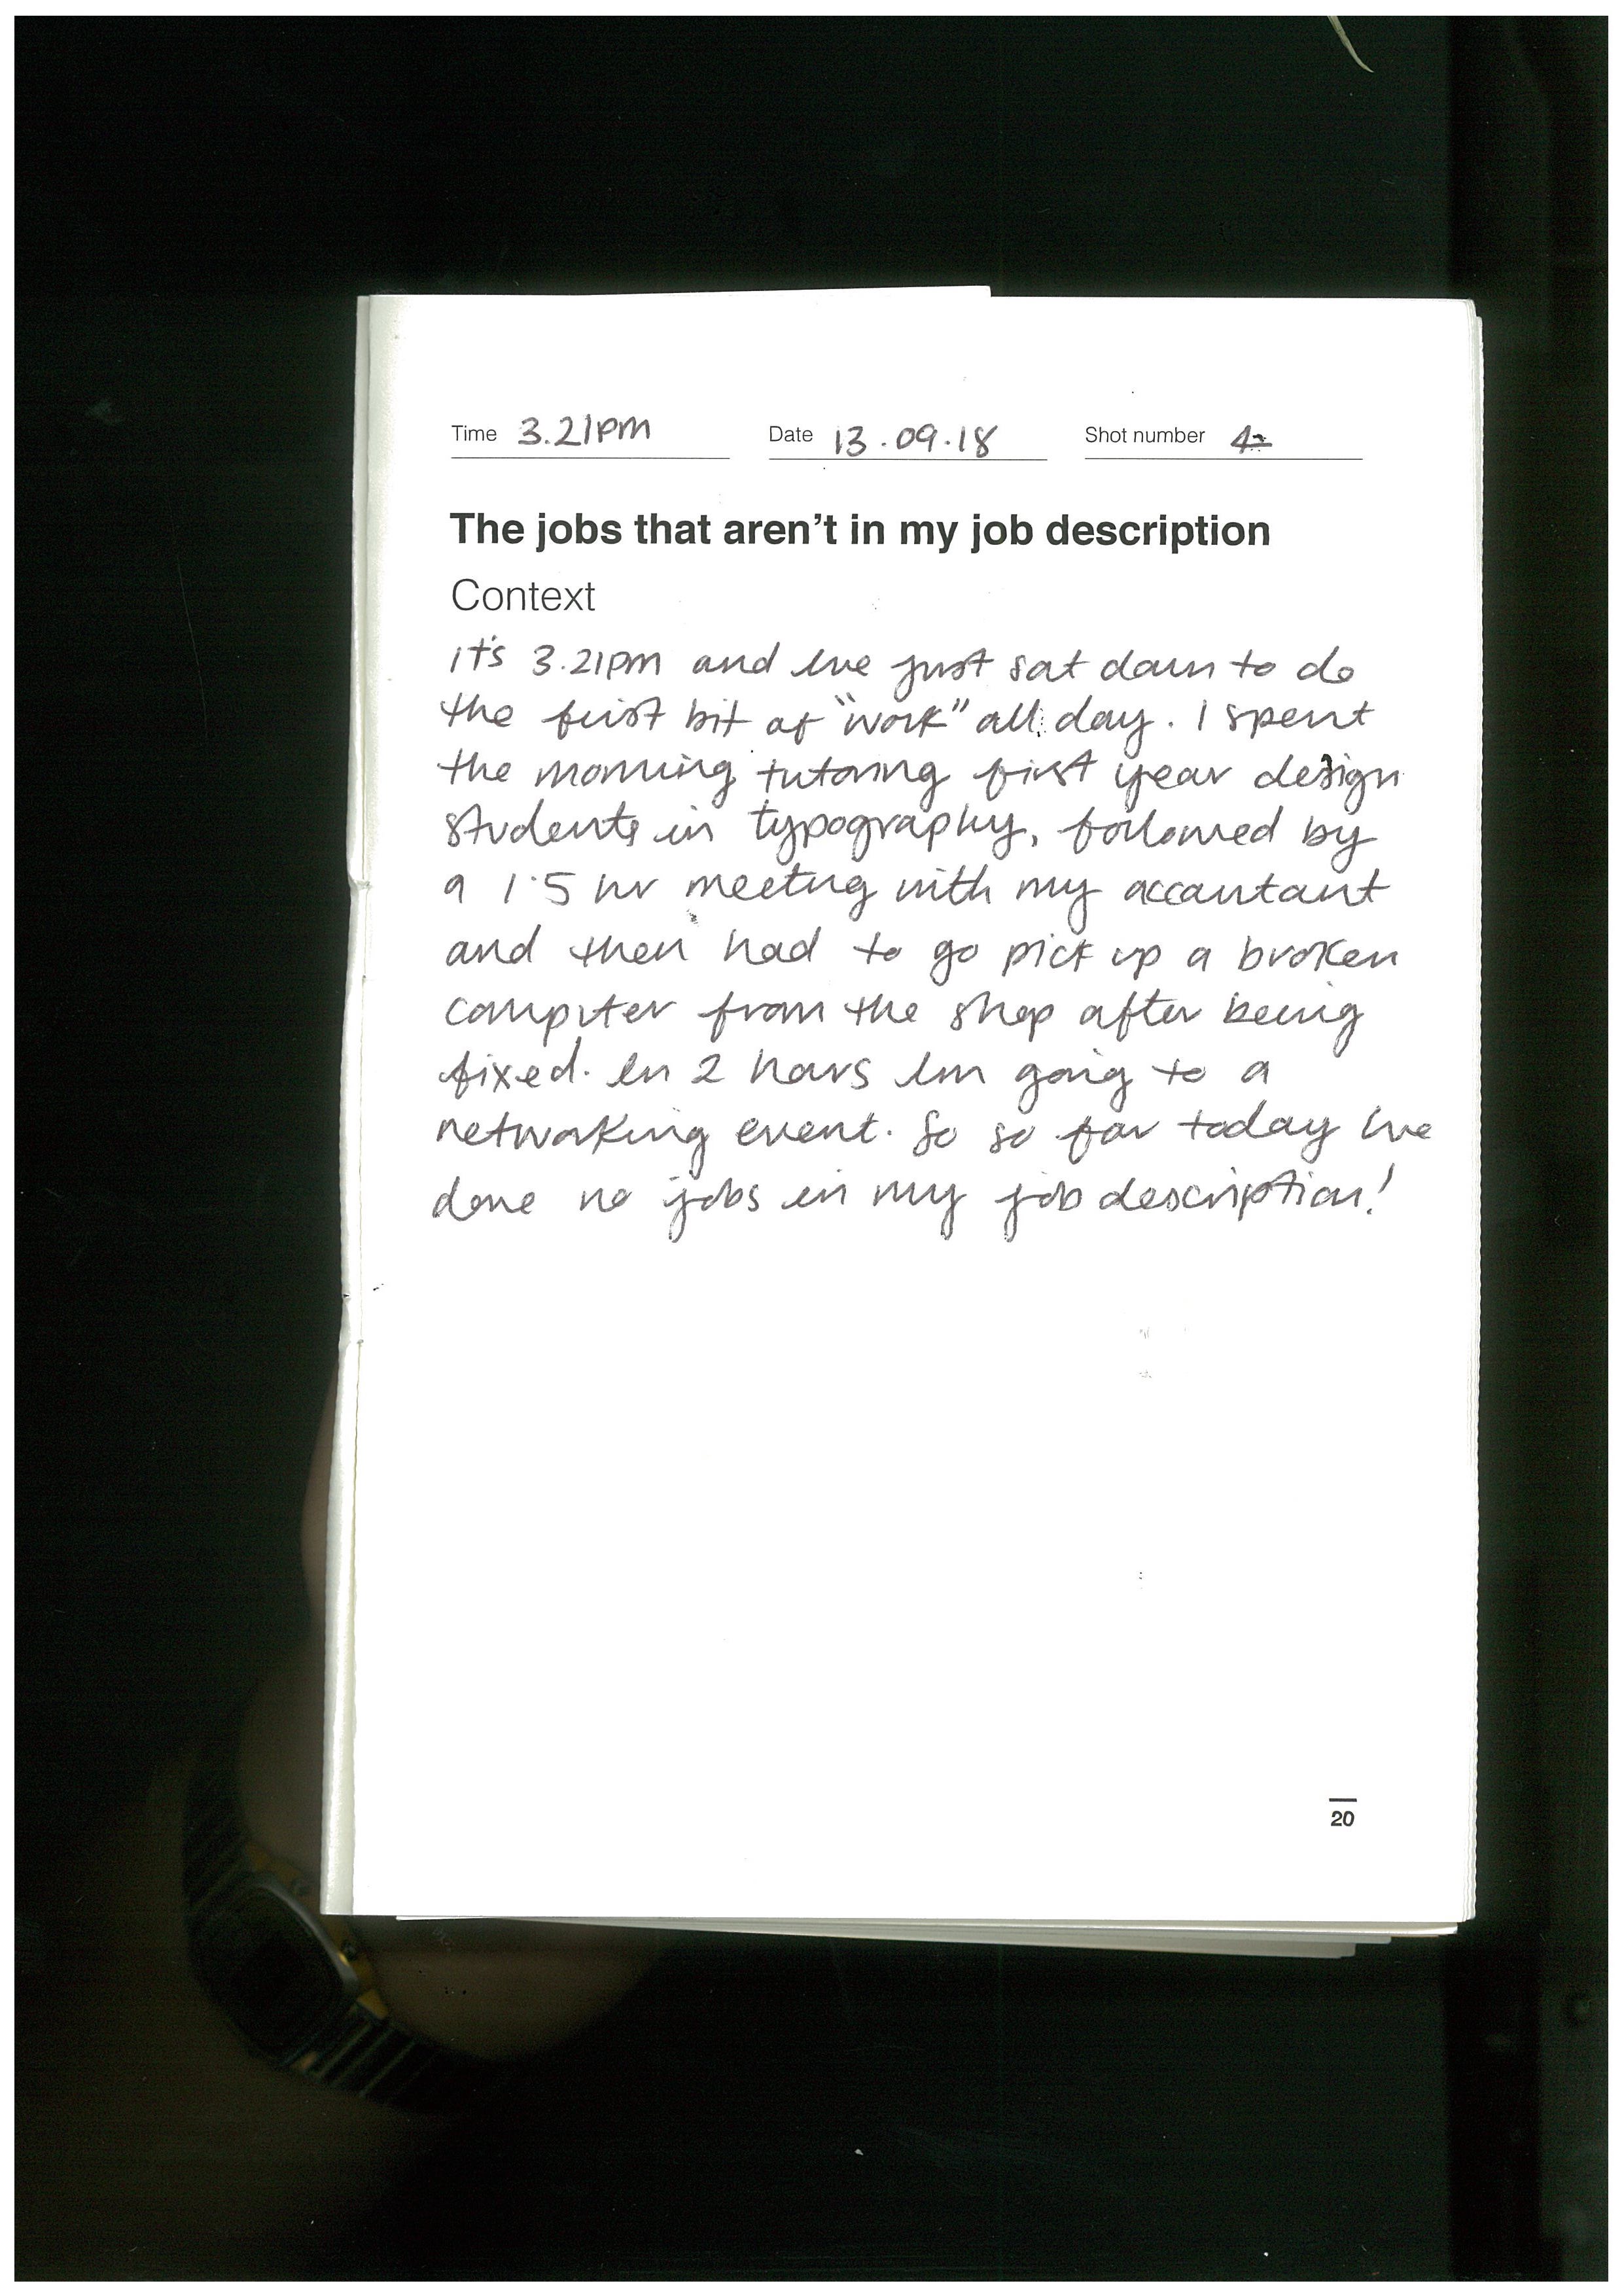 Time 3.21pm Date 13.09.18 Shot number 4
The jobs that aren't in my job description
Context
It's 3.21pm and I've just sat down to do
the first bit of "work" all day. I spent
the morning tutoring first year design
students in typography, followed by
a 1.5 hr meeting with my accountant
and then had to go pick up a broken
computer from the shop after being
fixed. In 2 hours I'm going to a
networking event. So so far today I've
done no jobs in my job description!
20